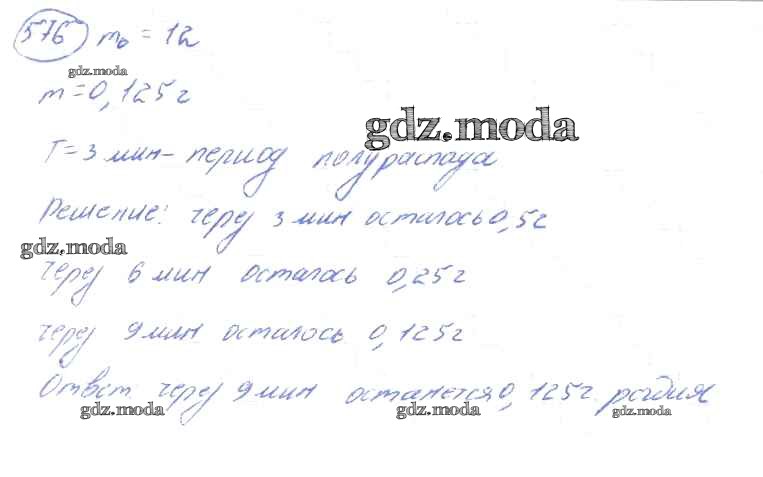 576 m₀ = 1г
gdz.moda
m = 0,125г
gdz.moda
T = 3 мин - период полураспада
Решение: через 3 мин осталось 0,5г
gdz.moda
через 6 мин осталось 0,25г
через 9 мин осталось 0,125г
Ответ: через 9 мин останется 0,125г. родия
gdz.moda gdz.moda gdz.moda